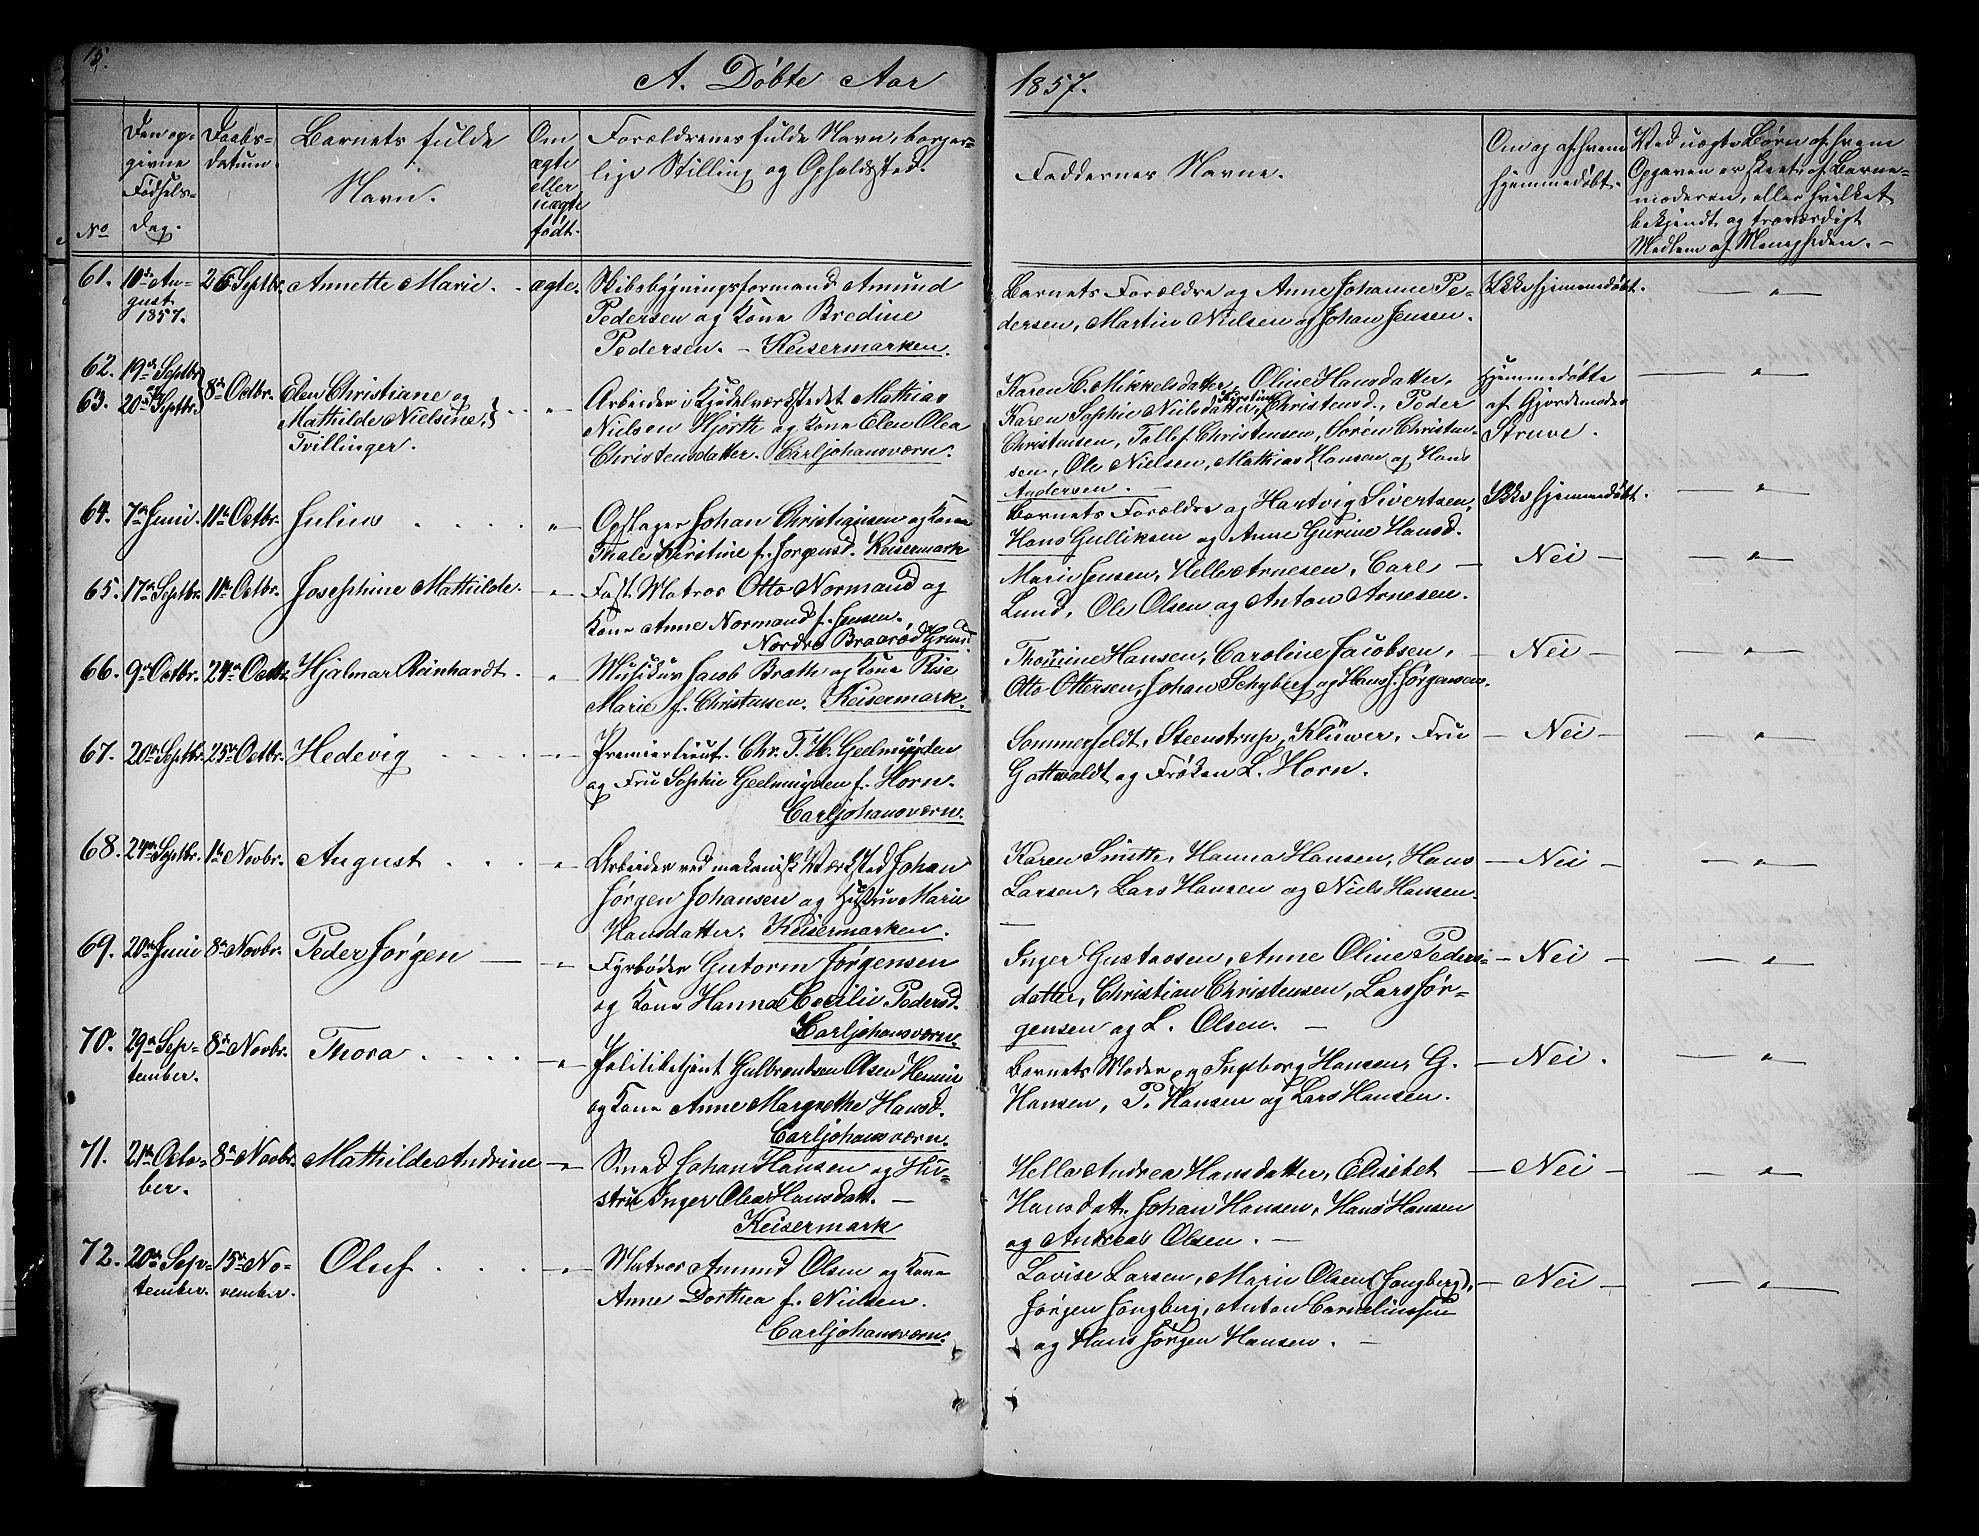 15.
A. Døbte Aar 1857.
No
Den op-
givne
Fødsels-
dag.
Daabs-
datum.
Barnets fulde
Navn.
Om
ægte
eller
uægte
født.
Forældrenes fulde Navn, borger-
lige Stilling og Opholdssted.
Faddernes Navne.
Om og af hvem
hjemmedøbt.
Ved uægte Børn af hvem
Opgaven er skeet, af Barne-
moderen, eller hvilket
bekjendt og troværdigt
Medlem af Menigheden. -
61. 10de Au- 26 Septbr. Annette Marie. ægte. Skibsbygningsformand Amund
gust
1857.
Pedersen og Kone Bredine
Pedersen. - Keisermarken.
Barnets Forældre og Anne Johanne Pe-
dersen, Martin Nielsen og Johan Jensen.
Ikke hjemmedøbt. — " —
62. 19de Septbr.
og
63. 20de Septbr. 8de Octbr. Elen Christiane og
Mathilde Nielsine,
Tvillinger.
- " - Arbeider i Kjedelværkstedet Mathias
Nielsen Hjorth og Kone Elen Olea
Christensdatter. Carljohansværn.
Karen C. Mikkelsdatter, Oline Hansdatter,
Karen Sophie Nielsdatter, Kirstine Christensd., Peder
Christensen, Tollef Christensen, Søren Christen-
sen, Ole Nielsen, Mathias Hansen og Hans
Andersen. -
Hjemmedøbte
af Gjordemoder
Struve.
— " —
64. 7de Juni. 11te Octbr. Julius - " - Opslager Johan Christiansen og Kone
Thale Kirstine f. Jorgensd. Keisermark
Barnets Forældre og Hartvig Sivertsen,
Hans Gulliksen og Anne Gurine Hansd.
Ikke hjemmedøbt. — " —
65. 17de Septbr. 11te Octbr. Josephine Mathilde. - " - Fast Matros Otto Normand og
Kone Anne Normand f. Jensen.
Nordre Braarød Grund.
Marie Jensen, Helle Arnesen, Carl
Lund, Ole Olsen og Anton Arnesen.
— Nei — — " —
66. 9de Octbr. 24de Octbr. Hjalmar Reinhardt. - " - Musikus Jacob Brath og Kone Rise
Marie f. Christensen. Keisermark.
Thomine Hansen, Caroline Jacobsen,
Otto Ottersen, Johan Schyberg og Hans J. Jørgensen.
— Nei — — " —
67. 20de Septbr. 25de Octbr. Hedevig - " - Premierlieut. Chr. T. H. Geelmuyden
og Fru Sophie Geelmuyden f. Horn.
Carljohansværn.
Sommerfeldt, Steenstrup, Klüwer, Fru
Gottwaldt og Frøken L. Horn.
— Nei — — " —
68. 24de Septbr. 1te Novbr. August - " - Arbeider ved mekanisk Værksted Johan
Jørgen Johansen og Hustru Marie
Hansdatter. Keisermarken.
Karen Smith, Hanna Hansen, Hans
Larsen, Lars Hansen og Niels Hansen.
— Nei — — " —
69. 20de Juni 8de Novbr. Peder Jørgen — - " - Fyrbøder Gutorm Jørgensen
og Kone Hanna Cecilie Pedersd.
Carljohansværn.
Inger Gustavsen, Anne Oline Peders-
datter, Christian Christensen, Lars Jør-
gensen og L. Olsen. —
— Nei — — " —
70. 29de Sep-
tember.
8de Novbr. Thora - " - Politibetjent Gulbrandsen Olsen Hennie
og Kone Anne Margrethe Hansd.
Carljohansværn.
Barnets Moder og Ingeborg Hansen, G.
Hansen, P. Hansen og Lars Hansen.
— Nei. — " —
71. 21de Octo-
ber.
8de Novbr. Mathilde Andrine - " - Smed Johan Hansen og Hu-
stru Inger Olea Hansdatt. —
Keisermark
Hella Andrea Hansdatter, Elisebet
Hansdatt. Johan Hansen, Hans Hansen
og Andreas Olsen. —
— Nei — — " —
72. 20de Sep-
tember.
15de No-
vember.
Oluf - " - Matros Amund Olsen og Kone
Anne Dorthea f. Nielsen.
Carljohansværn.
Lovise Larsen, Marie Olsen (Jongberg),
Jørgen Jongberg, Anton Corneliussen
og Hans Jørgen Hansen. —
— Nei — — " —